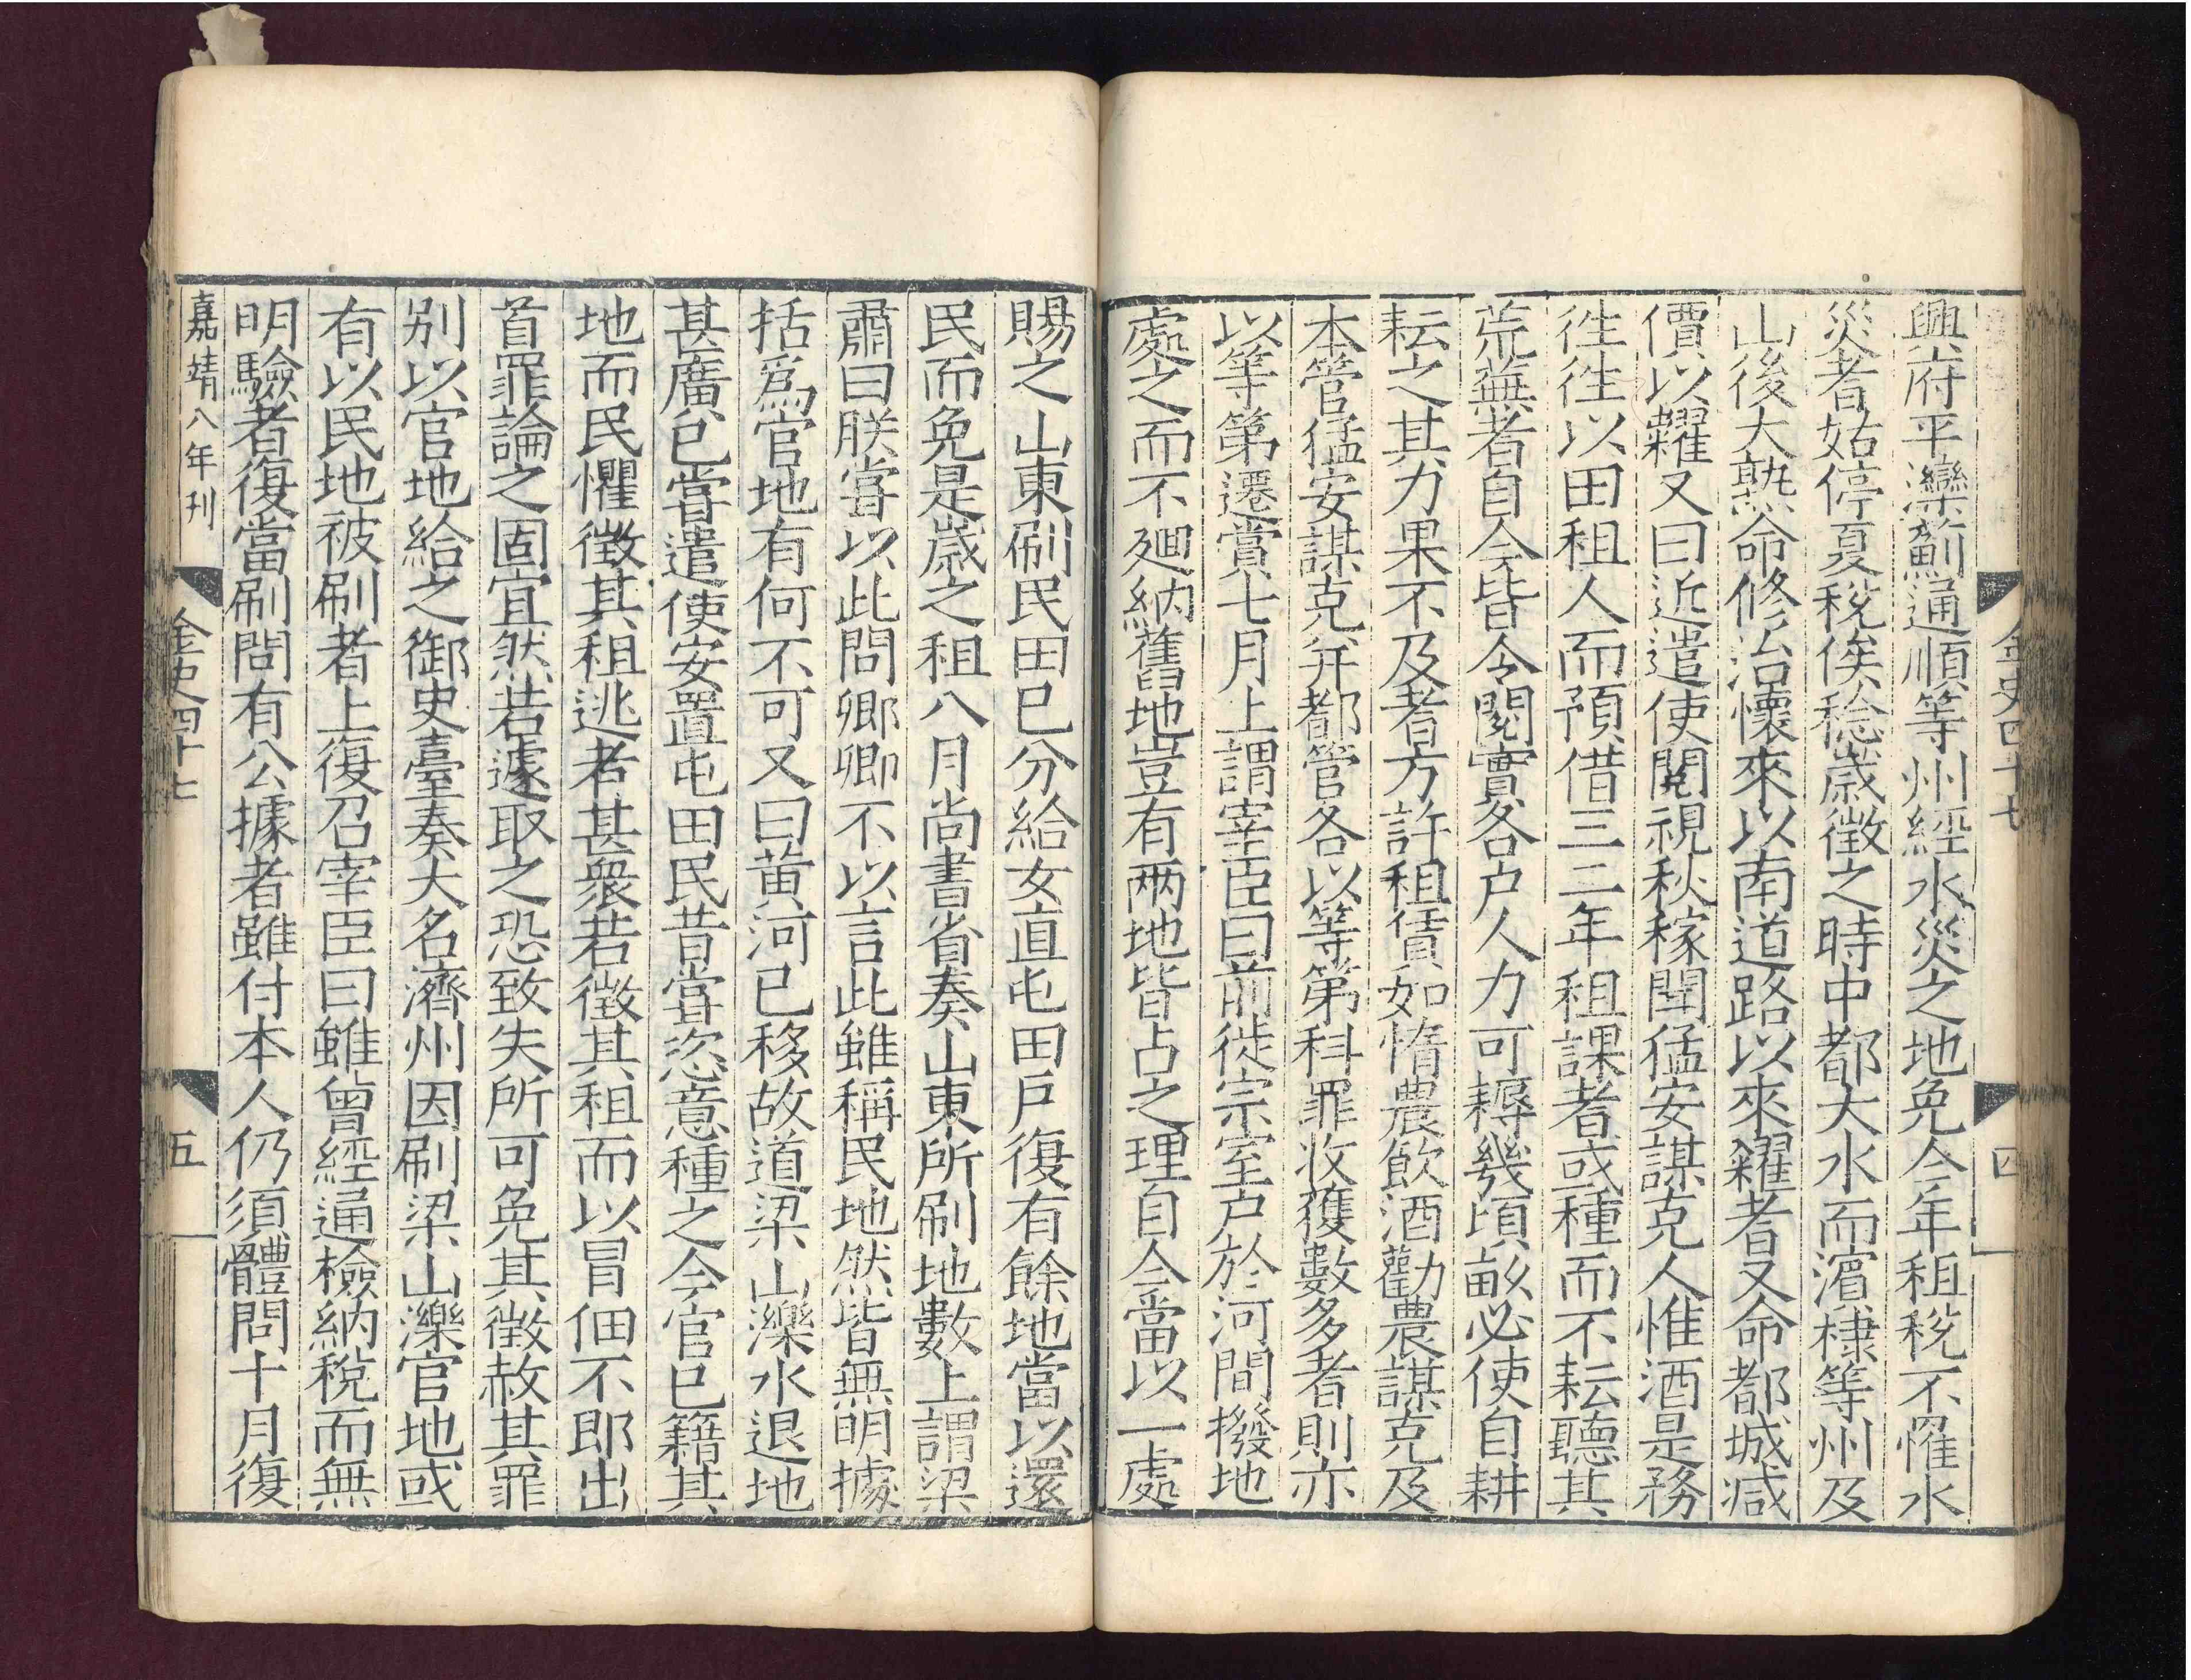 興府平灤薊通順等州經水災之地免今年租稅不罹水
災者姑停夏稅俟稔歲徵之時中都大水而濵棣等州及
山後大熟命修治懷來以南道路以來糴者又命都城减
價以糶又曰近遣使閱視秋稼聞猛安謀克人惟酒是務
徃徃以田租人而預借三二年租課者或種而不耘聽其
荒蕪者自今皆令閱實各户人力可耨幾頃畝必使自耕
耘之其力果不及者方許租賃如惰農飲酒勸農謀克及
本管猛安謀克并都管各以等第科罪收獲數多者則亦
以等第遷賞七月上謂宰臣曰前徙宗室户於河間撥地
處之而不廻納舊地豈有兩地皆占之理自今當以一處
金史四十七
四
賜之山東刷民田巳分給女直屯田戸復有餘地當以還
民而免是歲之租八月尚書省奏山東所刷地數上謂梁
肅曰朕嘗以此問卿卿不以言此雖稱民地然皆無明據
括爲官地有何不可又曰黃河已移故道梁山濼水退地
甚廣已嘗遣使安置屯田民昔嘗恣意種之今官已籍其
地而民懼徵其租逃者甚衆若徵其租而以冒佃不即出
首罪論之固宜然若遽取之恐致失所可免其徵赦其罪
别以官地給之御史臺奏大名濟州因刷梁山濼官地或
有以民地被刷者上復召宰臣曰雖曾經通檢納稅而無
明驗者復當刷問有公據者雖付本人仍須體問十月復
嘉靖八年刊
金史四十七
五